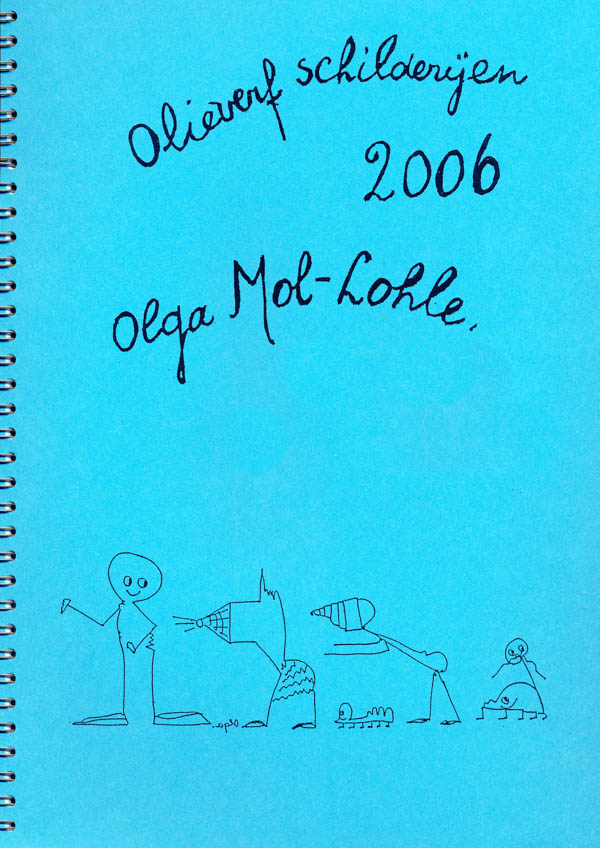 Olieverf schilderijen
2006
Olga Mol-Lohle.